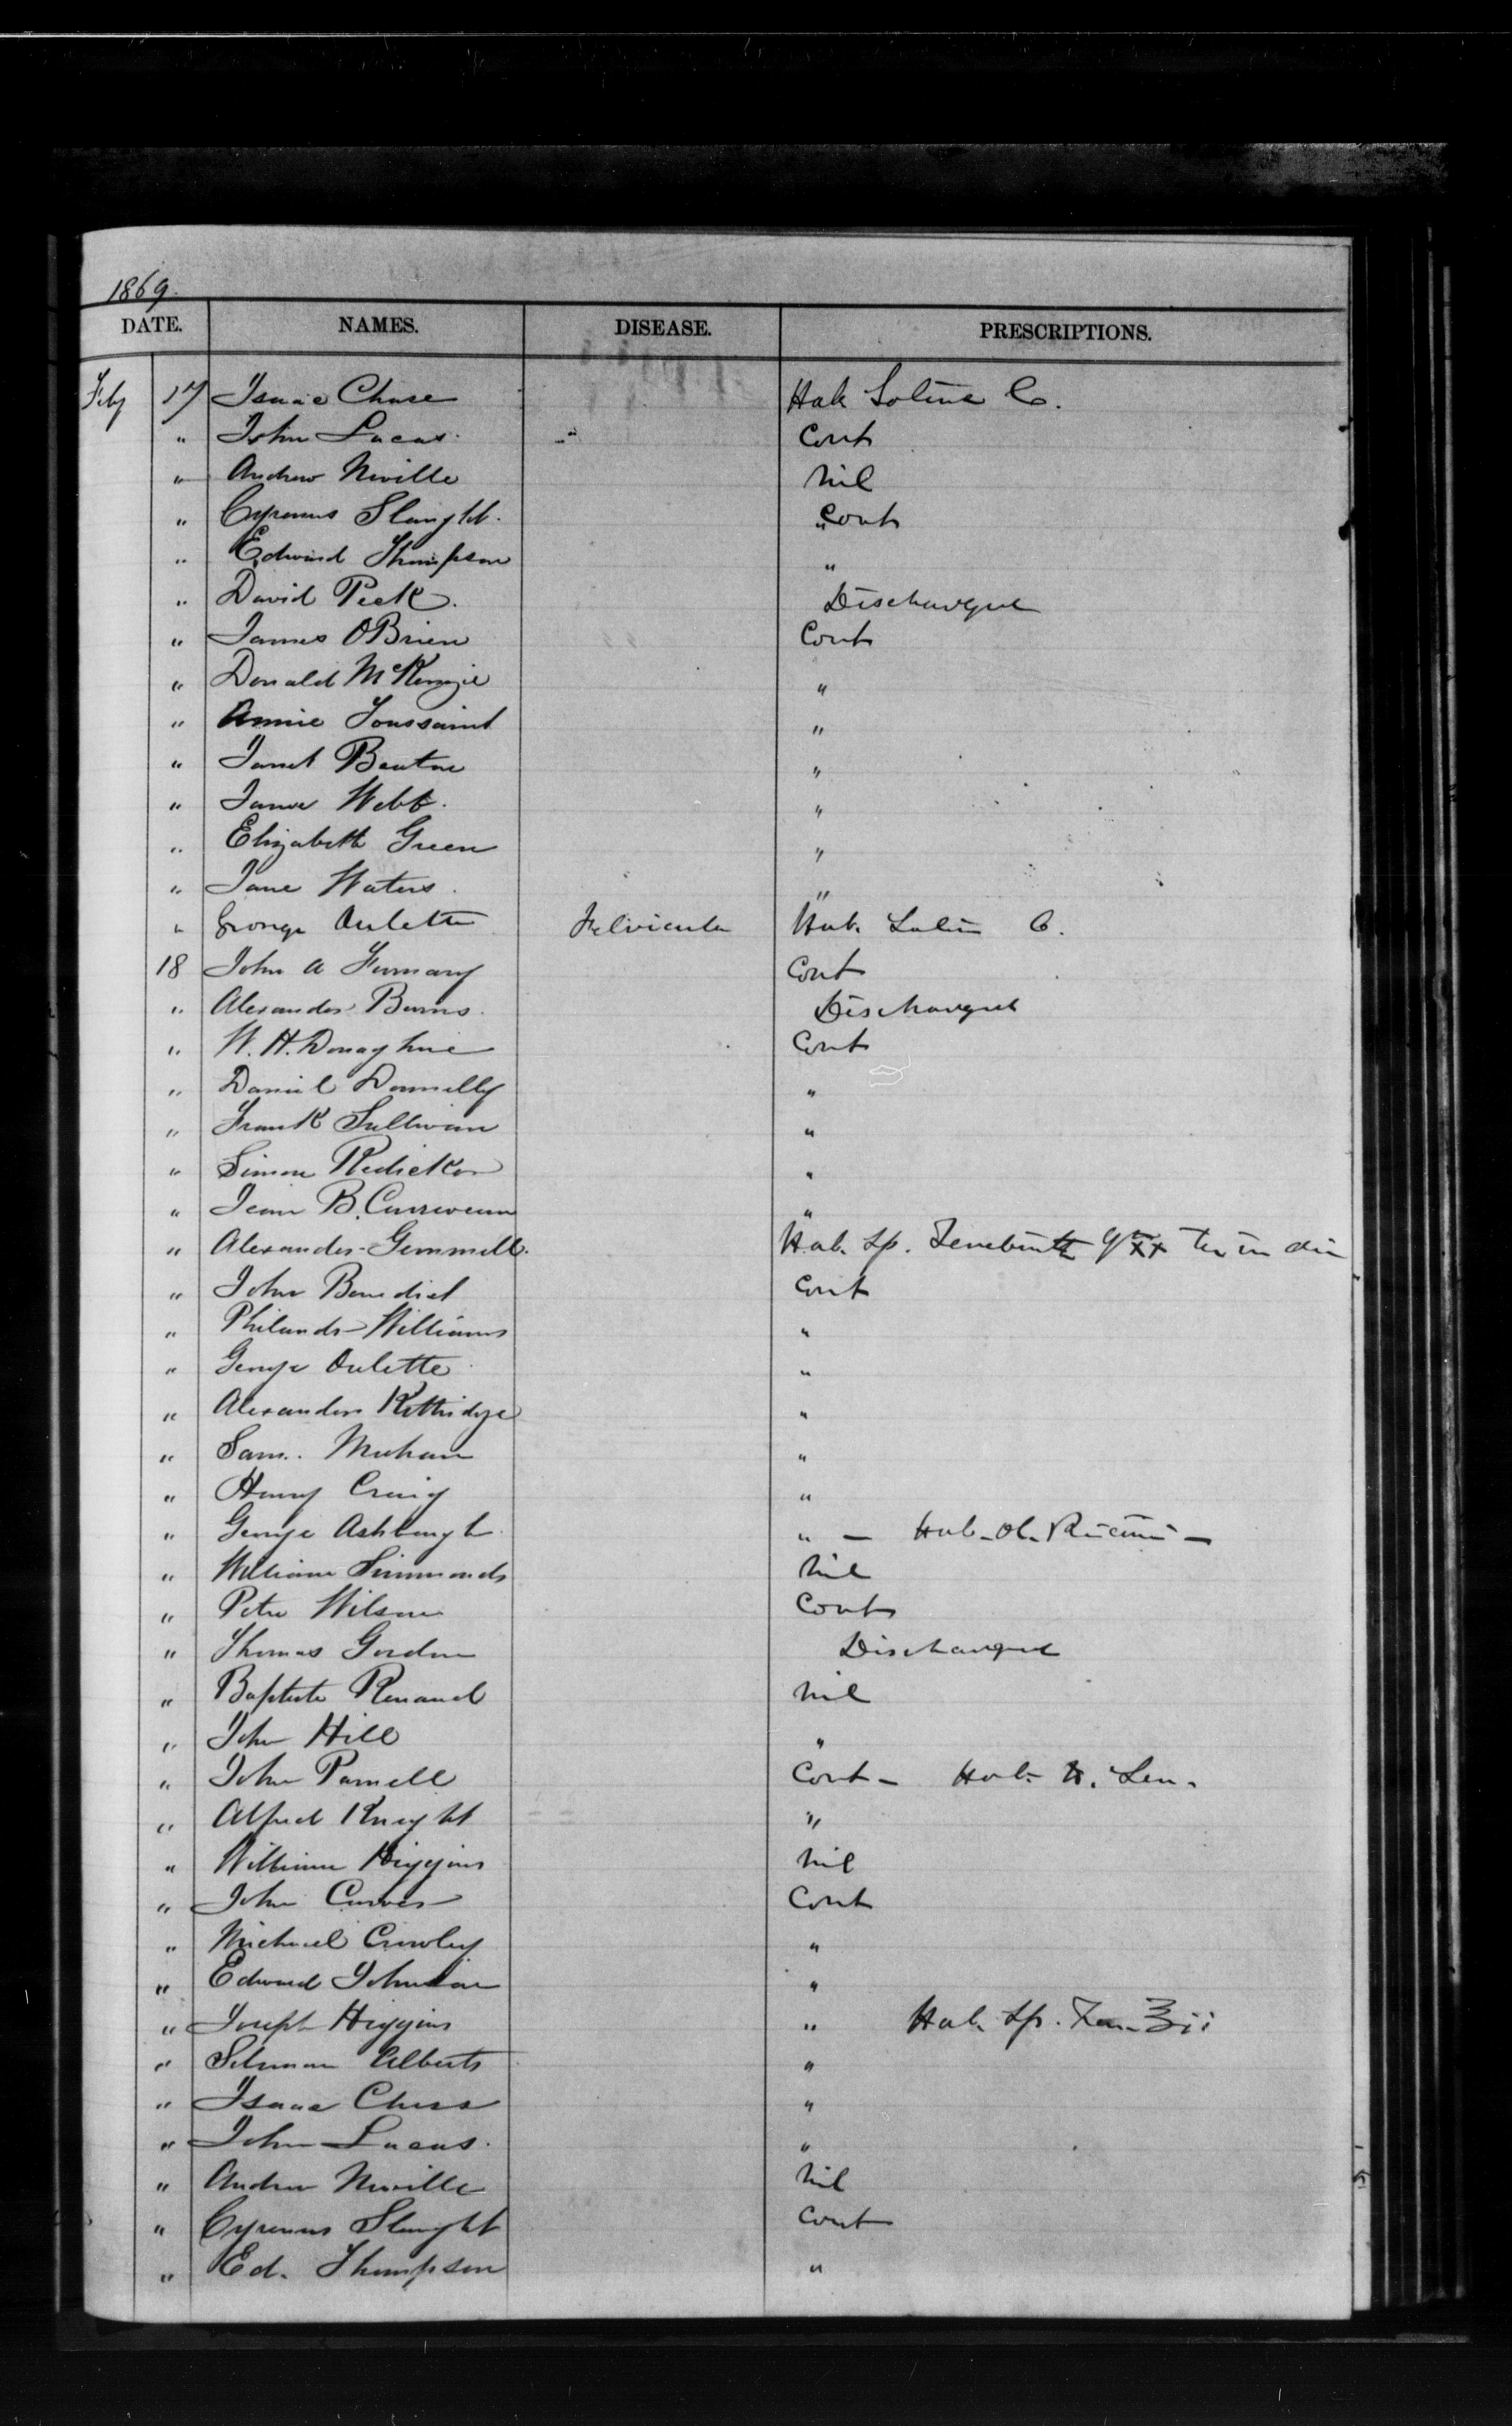 1869.
DATE. NAMES. DISEASE. PRESCRIPTIONS.
Feby 17 Isaac Chase Hab Co.
" John Lucas. Cont
" Andrew Neville Nil
" Cyrenus Slaught. " Cont
" Edward Thompson "
" David Peck. Discharged
" James OBrien Cont
" Donald McKenzie "
" Annie Toussaint "
" Janet Beaton "
" James Webb. "
" Elizabeth Green "
" Jane Waters. "
" George Oulette Febricula Hab. Co.
18 John A Cont
" Alexander Burns. Discharged
" W. H. Donaghue Cont
" Daniel Donnelly "
" Frank Sullivan "
" Simon "
" Jean B. "
" Alexander Gemmell. Hab. Sp. Terebinth xx ter in die
" John Benedict Cont
" Philander Williams "
" George Oulette "
" Alexander Kittridge "
" Sam. Meehan "
" Henry Craig "
" George Ashbaugh " — Hab. Ol. Ricini —
" William Simmonds Nil
" Peter Wilson Cont
" Thomas Gordon Discharged
" Baptiste Renaud Nil
" John Hill "
" John Parnell Cont — Hab.
" Alfred Knight "
" William Higgins Nil
" John Cont
" Michael Crowley "
" Edward Johnson "
" Joseph Higgins " Hab. Sp. ʒii
" Alberts "
" Isaac Chase "
" John Lucas. "
" Andrew Neville Nil
" Cyrenus Slaught Cont
" Ed. Thompson "